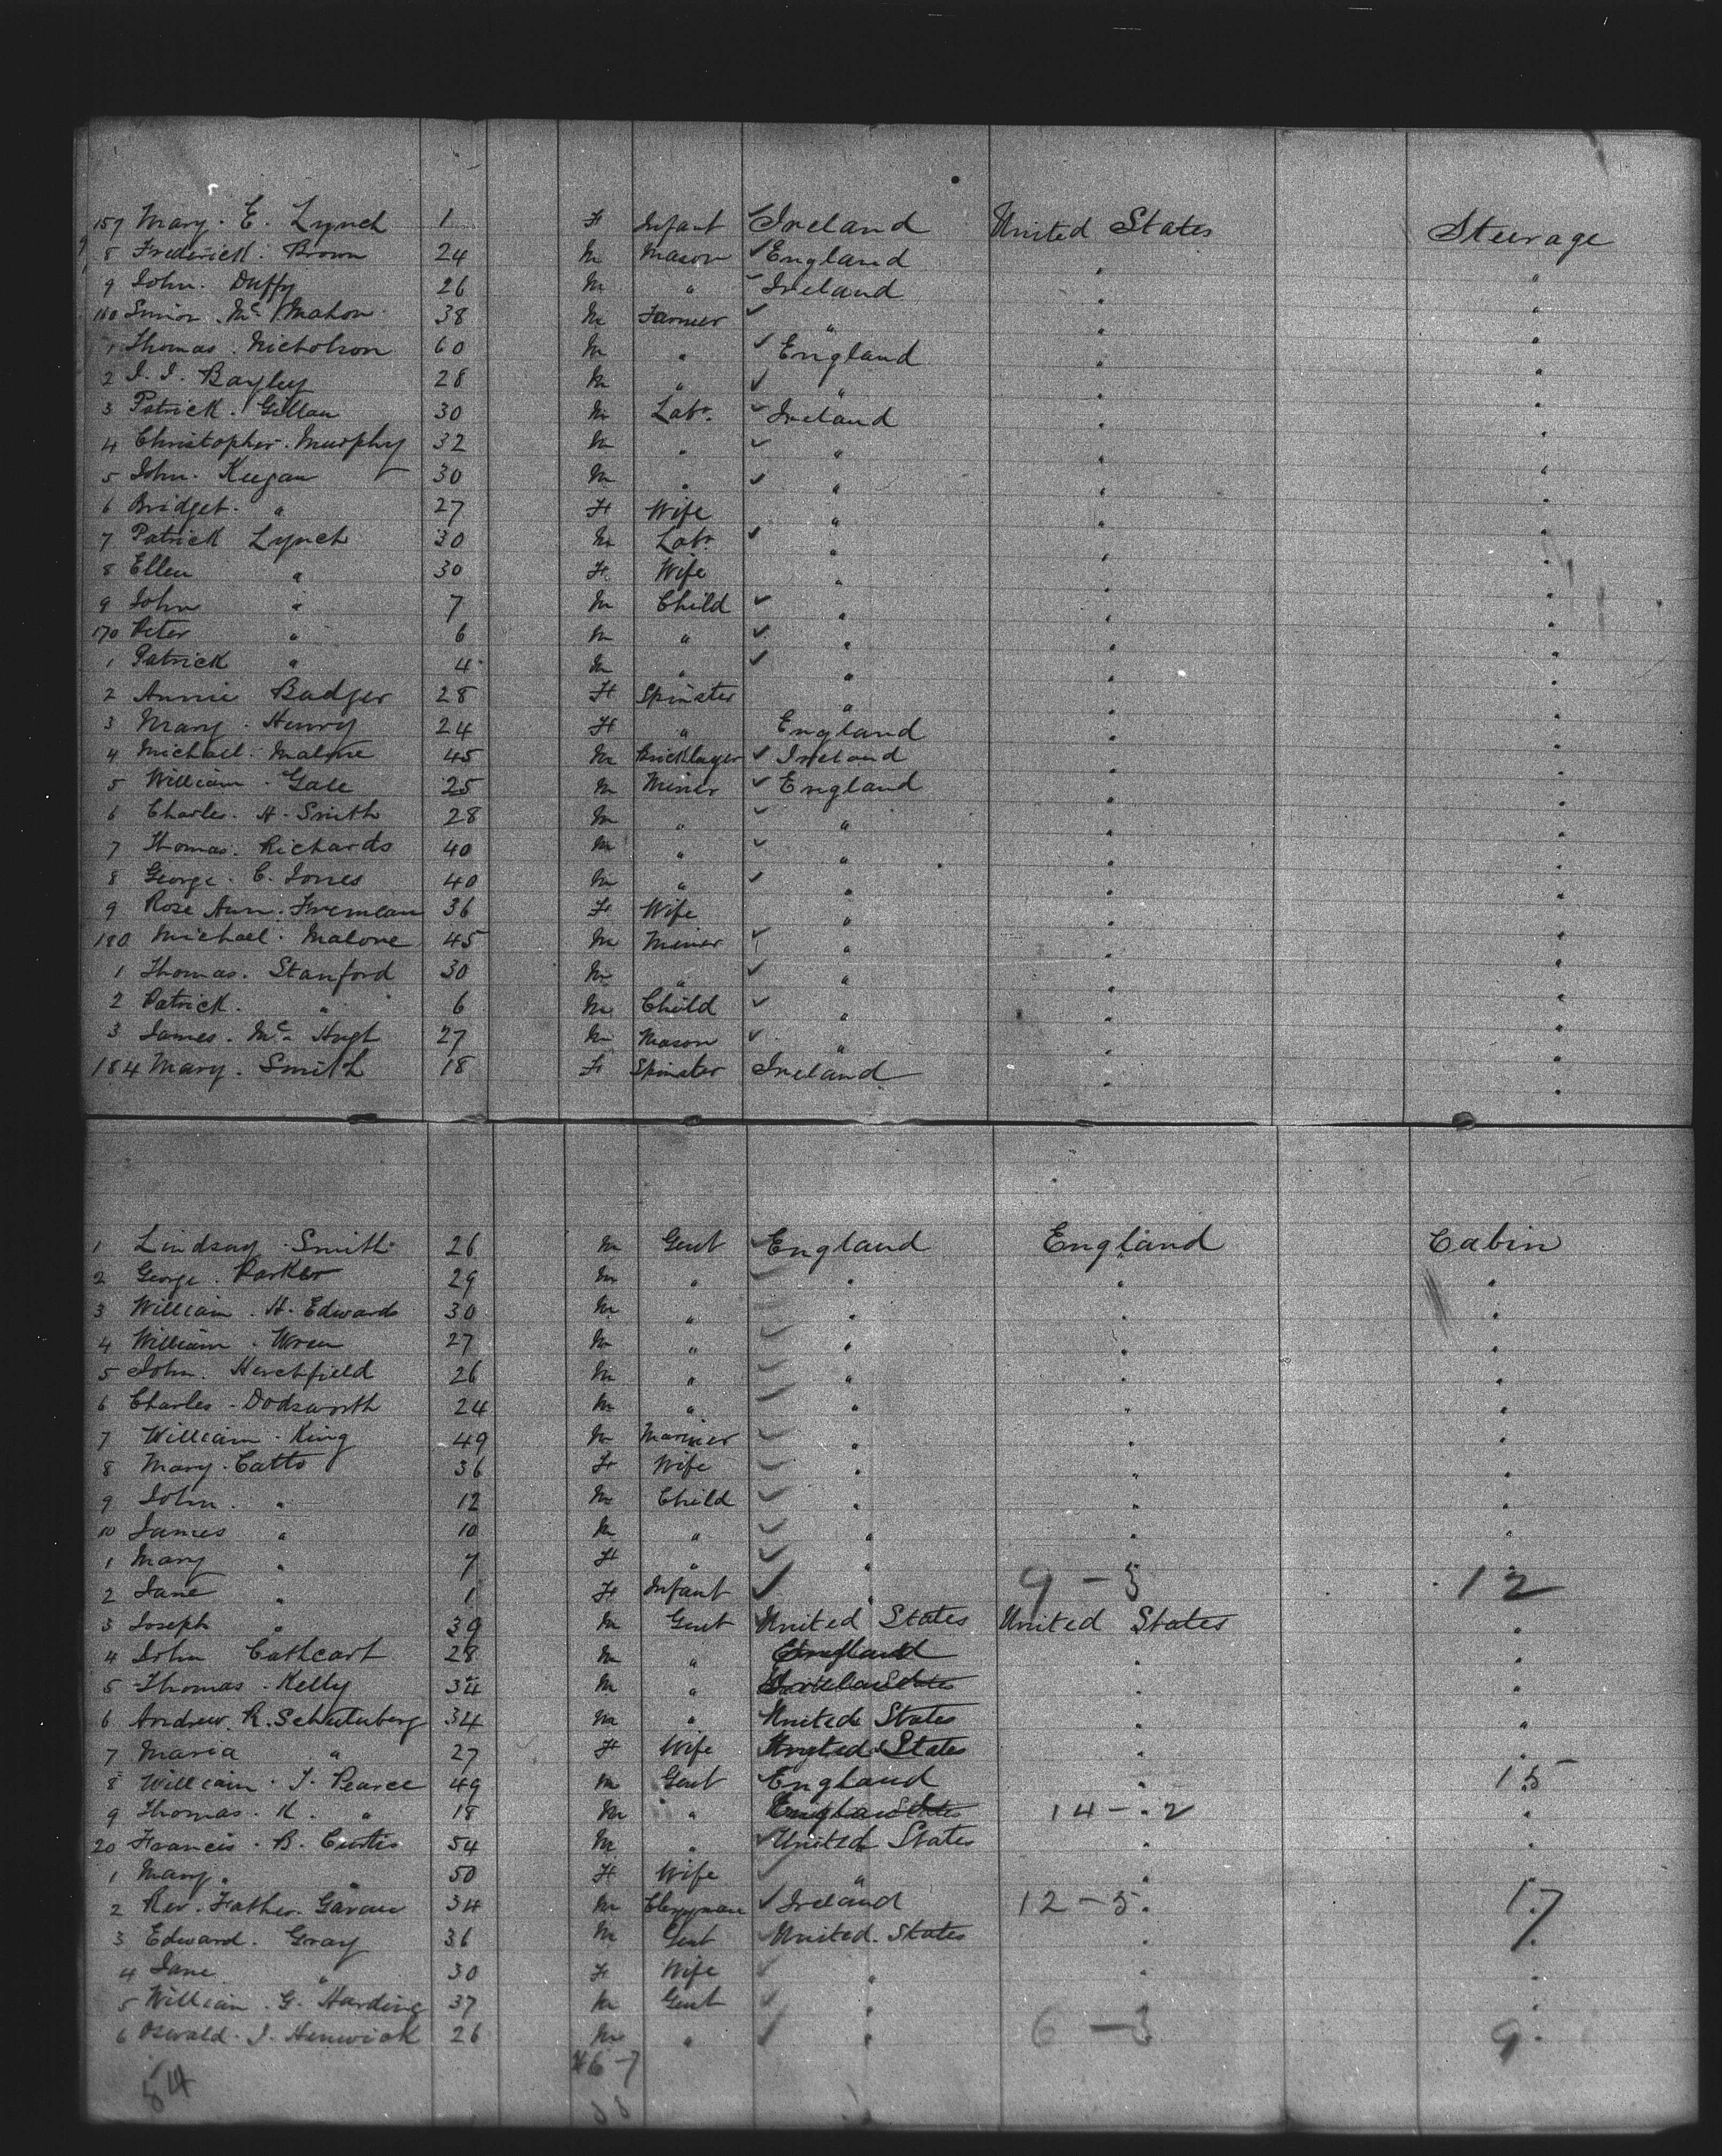 157 Mary. E. Lynch 1 F Infant Ireland United States Steerage
8 Frederick. Brown 24 M Mason England "
9 John. Duffy 26 M " Ireland " "
160 Simon. McMahon 38 M Farmer " " "
1 Thomas. Nicholson 60 M " England " "
2 J. J. Bayley 28 M " " " "
3 Patrick. Gillan 30 M Labr. Ireland " "
4 Christopher. Murphy 32 M " " " "
5 John. Keegan 30 M " " " "
6 Bridget. " 27 F Wife " " "
7 Patrick Lynch 30 M Labr. " " "
8 Ellen " 30 F Wife " " "
9 John " 7 M Child " " "
170 Peter " 6 M " " " "
1 Patrick " 4 M " " " "
2 Annie Badger 28 F Spinster " " "
3 Mary. Henry 24 F " England " "
4 Michael. Malone 45 M Bricklayer Ireland " "
5 William. Gale 25 M Miner England " "
6 Charles. H. Smith 28 M " " " "
7 Thomas. Richards 40 M " " " "
8 George. C. Jones 40 M " " " "
9 Rose Ann. 36 F Wife " " "
180 Michael. Malone 45 M Miner " " "
1 Thomas. Stanford 30 M " " " "
2 Patrick. " 6 M Child " " "
3 James. Mc 27 M Mason " " "
184 Mary. Smith 18 F Spinster Ireland " "
1 Lindsay. Smith 26 M Gent England England Cabin
2 George. Parker 29 M " " " "
3 William. H. Edwards 30 M " " " "
4 William. Wren 27 M " " " "
5 John. Herchfield 26 M " " " "
6 Charles. Dodsworth 24 M " " " "
7 William. King 49 M Mariner " " "
8 Mary. Catto 36 F Wife " " "
9 John. " 12 M Child " " "
10 James " 10 M " " " "
1 Mary " 7 F " "
2 Jane " 1 F Infant " 9-3 12
3 Joseph " 39 M Gent United States United States "
4 John Cathcart 28 M " England " "
5 Thomas. Kelly 34 M " " "
6 Andrew. R. 34 M " United States " "
7 Maria " 27 F Wife United States " "
8 William. J. Pearce 49 M Gent England " 15
9 Thomas. K. " 18 M " 14-2 "
20 Francis. B. Curtis 54 M " United States " "
1 Mary. " 50 F Wife " "
2 Rev. Father. 34 M Clergyman Ireland 12-5 17
3 Edward. Gray 36 M Gent United. States " "
4 Jane " 30 F Wife " " "
5 William. G. Harding 37 M Gent " "
6 Oswald. J. Henwick 26 M " " 6-3 9
54 46-7